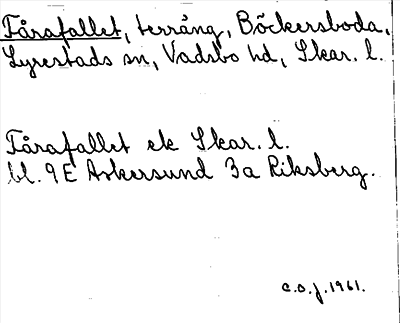 Fårafallet, terräng, Böckersboda,
Lyrestads sn, Vadsbo hd, Skar. l.
Fårafallet ek Skar. l.
bl. 9E Askersund 3a Riksberg.
c.o.j. 1961.